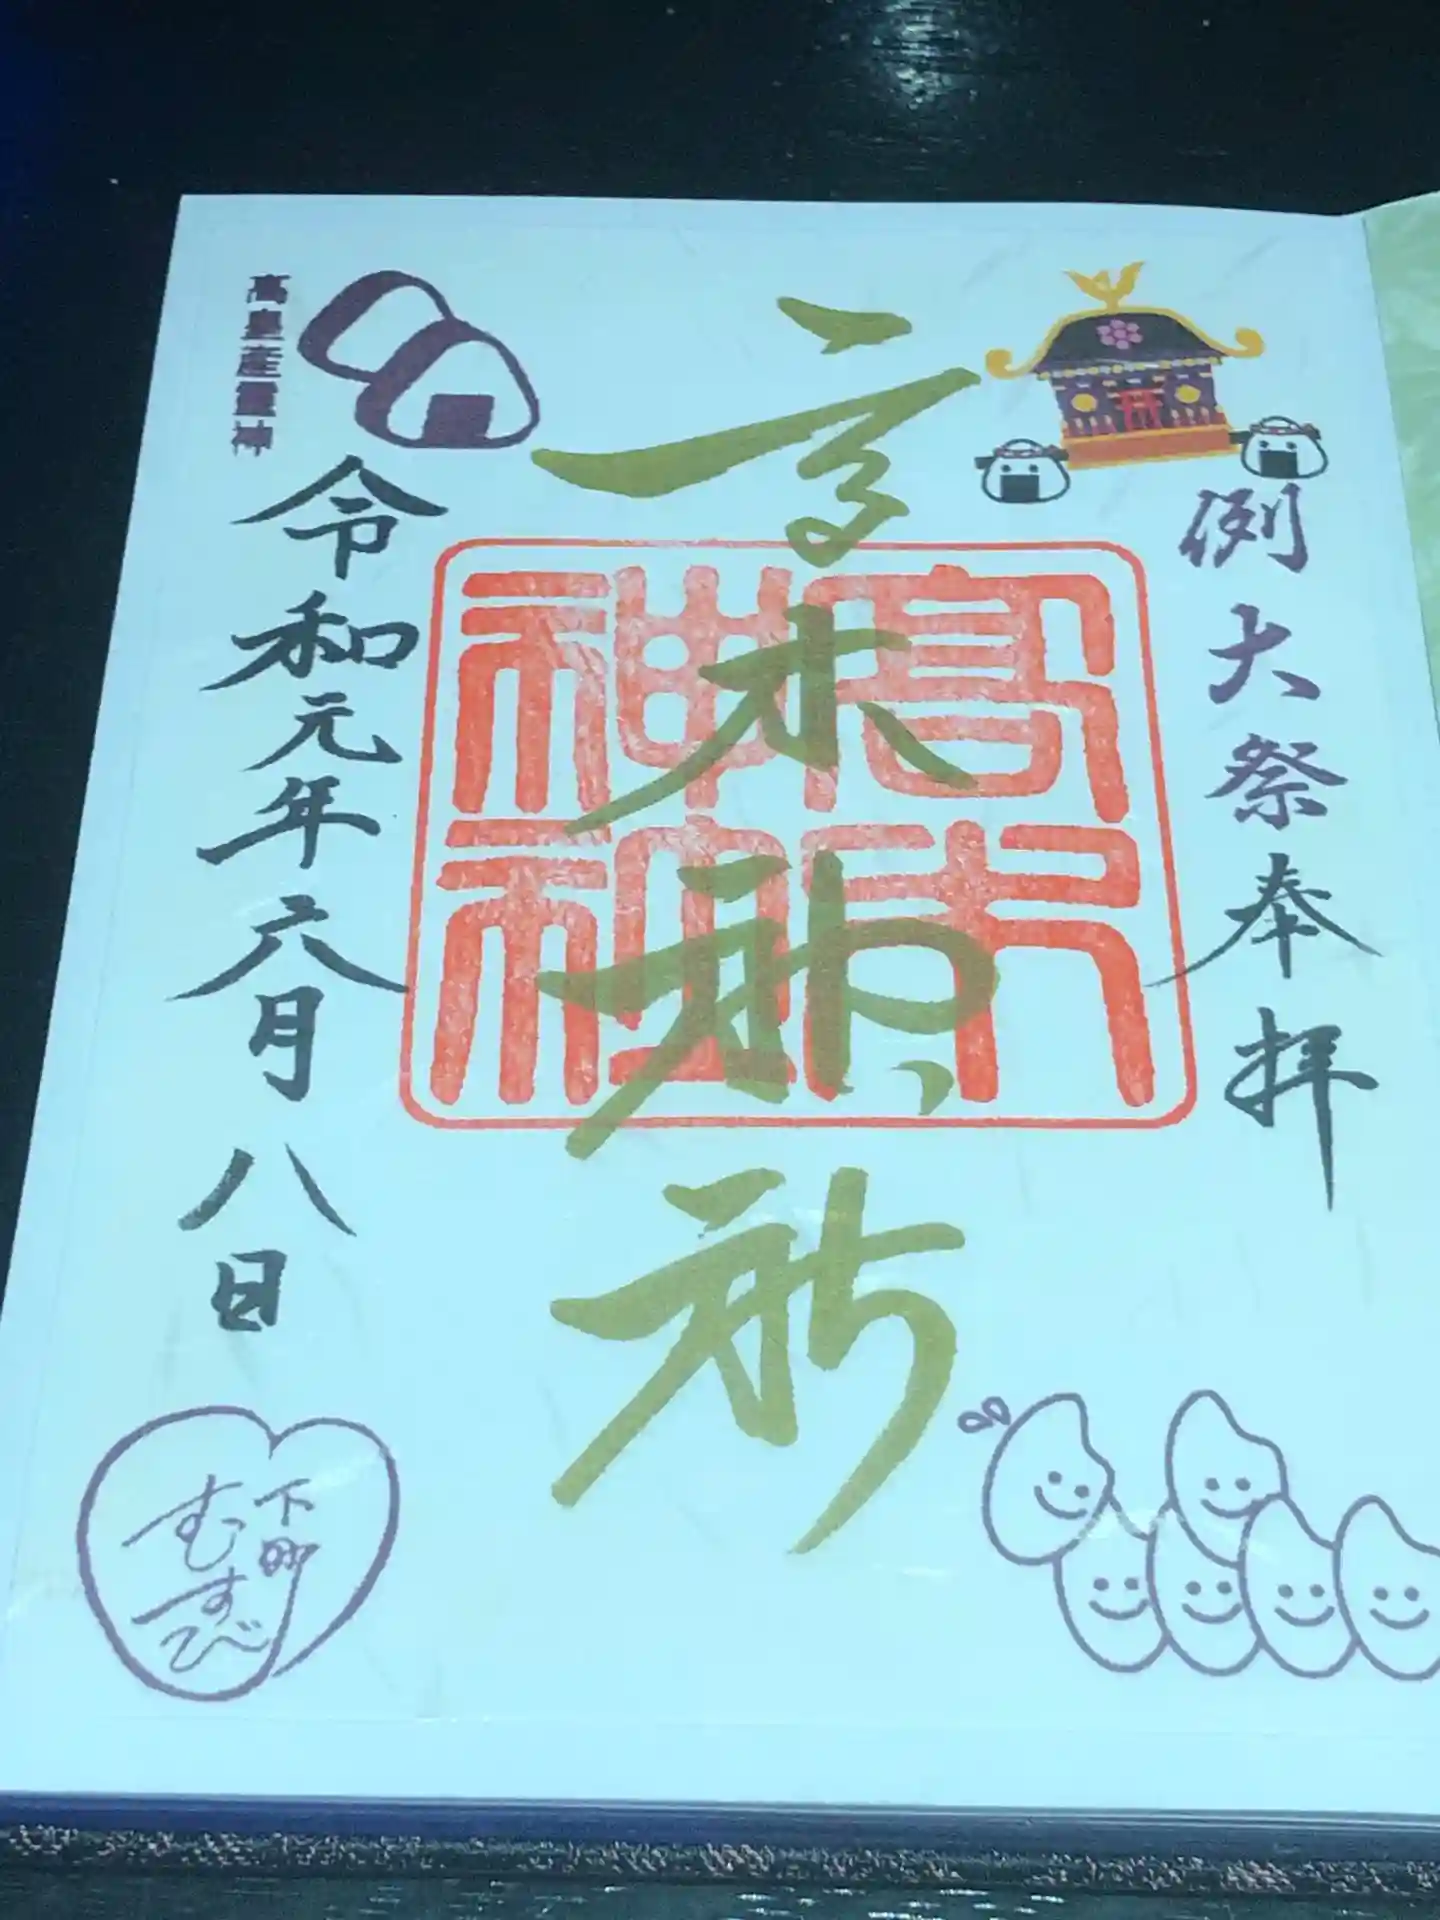 例大祭奉拝
高木神社
髙木
神社
高皇産霊神
令和元年六月八日
下町
むすび